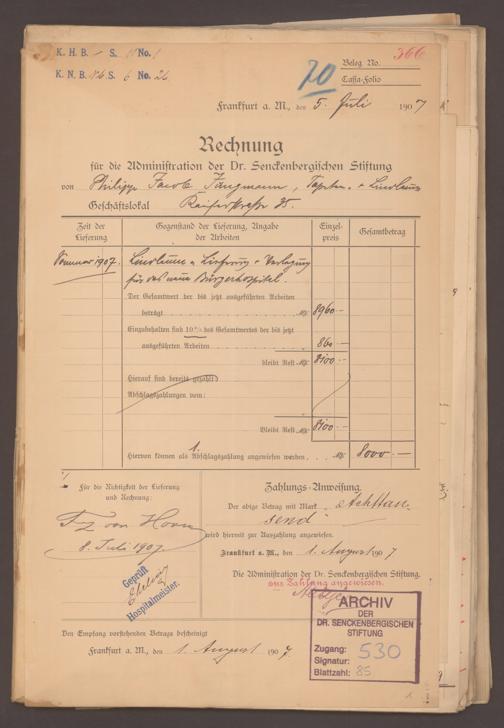 K. H. B. S. No.
K. N. B. S. 6 No.
70
366
Beleg No.
Cassa-Folio
Frankfurt a. M., den 5. Juli 1907
Rechnung
für die Administration der Dr. Senckenbergischen Stiftung
von Philipp Jacob Jungmann, Tapeten + Linoleum
Geschäftslokal Kaiserstraße 35.
Zeit der
Lieferung
Gegenstand der Lieferung, Angabe
der Arbeiten
Einzel-
preis
Gesamtbetrag
Sommer 1907. Linoleum Lieferung + Verlegung
für das neue Bürgerhospital.
Der Gesamtwert der bis jetzt ausgeführten Arbeiten
beträgt M. 8960 —
Einzubehalten sind 10% des Gesamtwertes der bis jetzt
ausgeführten Arbeiten 860 —
bleibt Rest M. 8100 —
Hierauf sind bereits gezahlt
Abschlagszahlungen vom:
Bleibt Rest M. 8100 —
Hiervon können als 1. Abschlagszahlung angewiesen werden M. 8000 —
Für die Richtigkeit der Lieferung
und Rechnung:
F. von Hoven
8. Juli 1907.
Geprüft
Hospitalmeister.
Zahlungs-Anweisung.
Der obige Betrag mit Mark Achttau-
send
wird hiermit zur Auszahlung angewiesen.
Frankfurt a. M., den 1. August 1907
Die Administration der Dr. Senckenbergischen Stiftung.
zur Zahlung angewiesen.
ARCHIV
DER
DR. SENCKENBERGISCHEN
STIFTUNG
Zugang: 530
Signatur:
Blattzahl: 85
Den Empfang vorstehenden Betrags bescheinigt
Frankfurt a. M., den 1. August 1907.